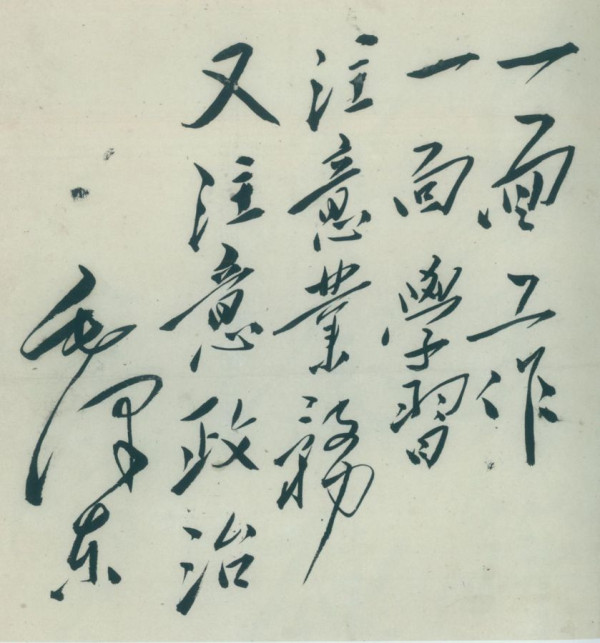 一面工作
一面學習
注意業務
又注意政治
毛泽东